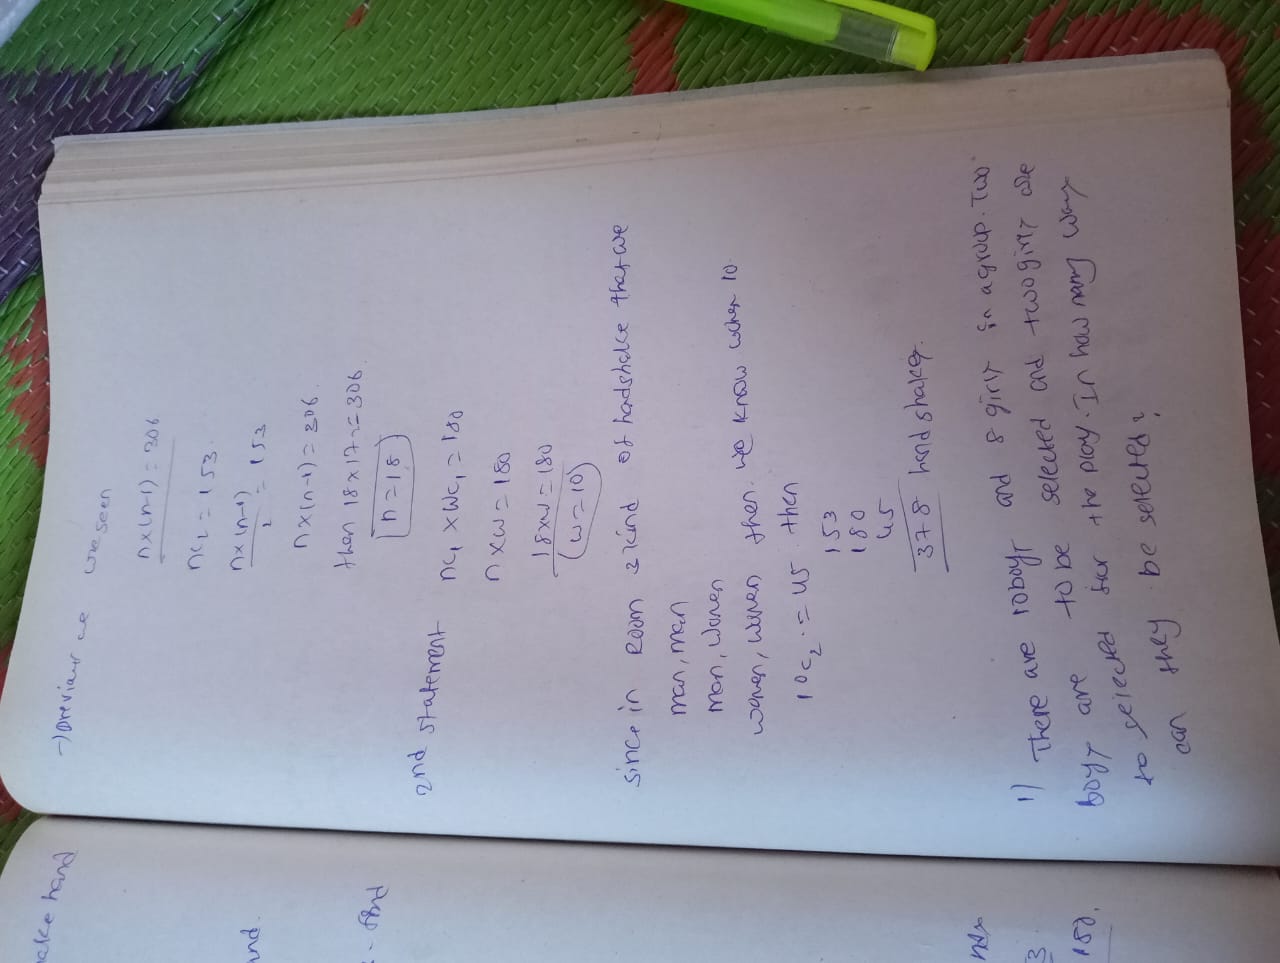 → previous we we seen
n×(n-1) = 306
nc₂ = 153
n×(n-1)/2 = 153
n×(n-1) = 306.
then 18×17 = 306.
n=18
2nd statement nc₁ × wc₁ = 180
n×w = 180
18×w = 180
w=10
since in Room 3 kind of handshake that we
man, man
man, women
women, women then. we know women 10.
10c₂ = 45. then
153
180
45
378 hand shakes.
1) There are 10boys and 8 girls in a group. Two
boys are to be selected and two girls are
to selected for the play. In how many ways
can they be selected?
ake hand
nd.
- find
3
180.